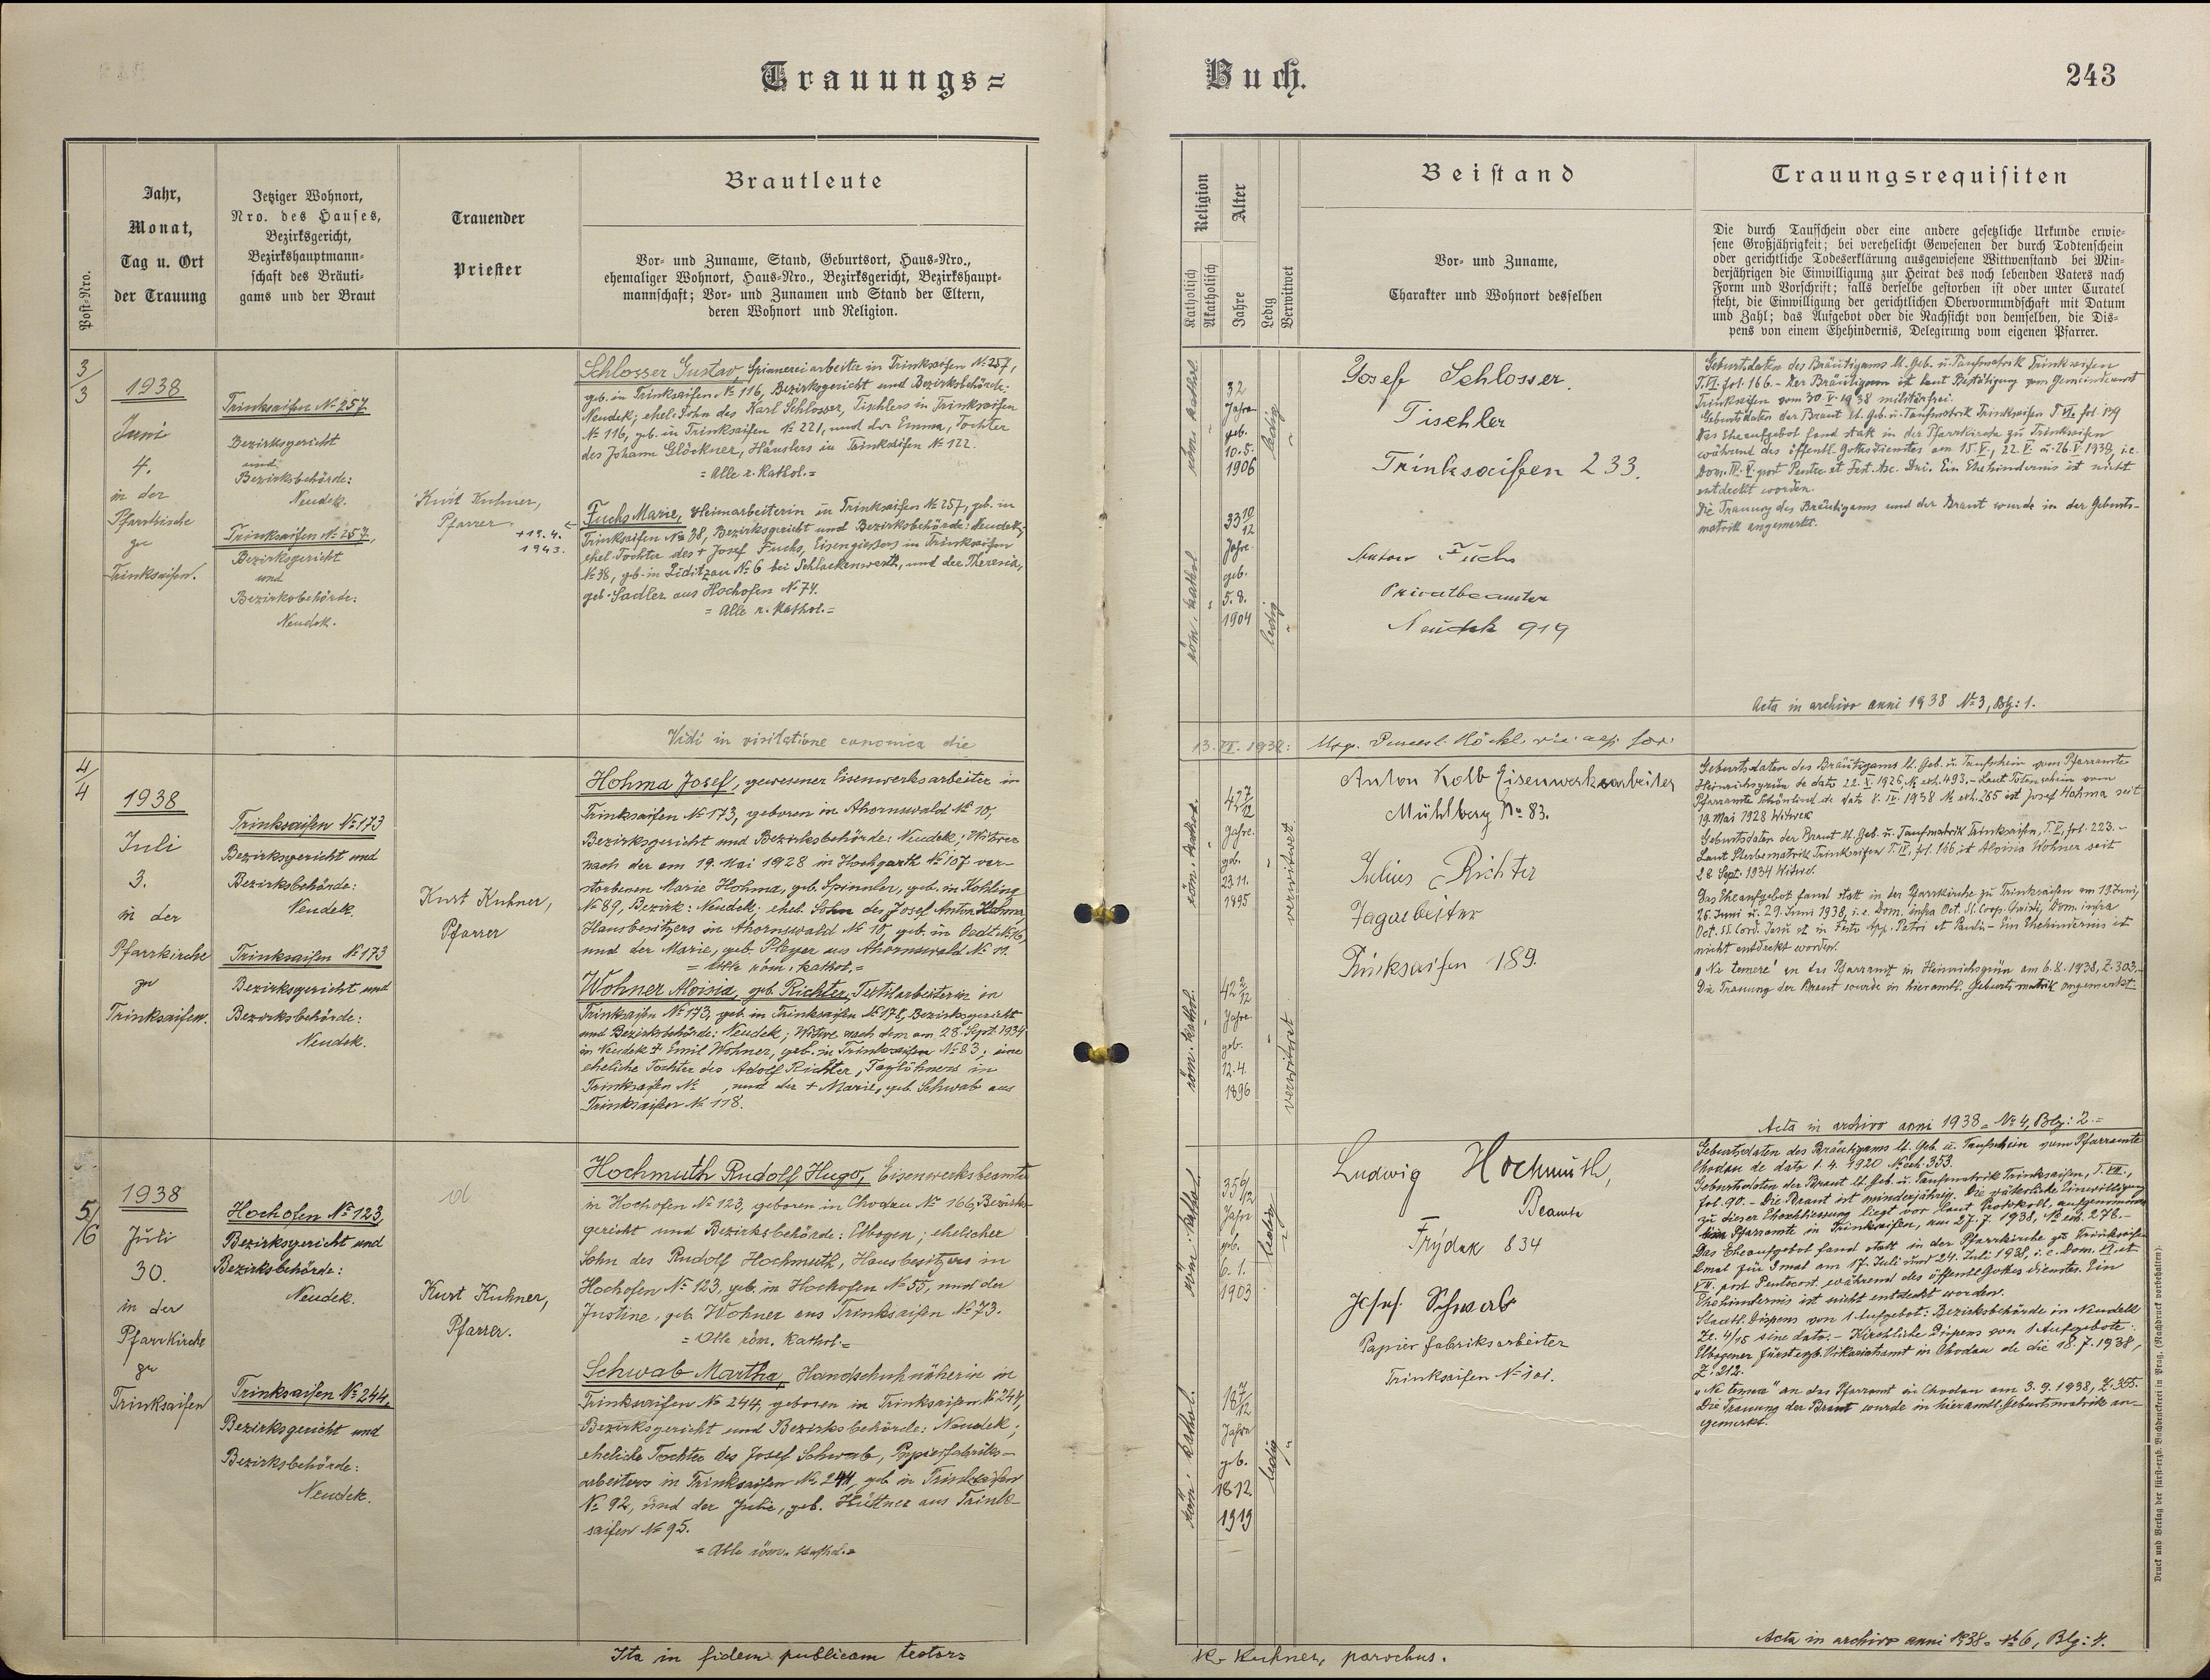 Trauungs=
Buch.
243
Post-Nro.
Jahr,
Monat,
Tag u. Ort
der Trauung
Jetziger Wohnort,
Nro. des Hauses,
Bezirksgericht,
Bezirkshauptmann-
schaft des Bräuti-
gams und der Braut
Trauender
Priester
Brautleute
Vor- und Zuname, Stand, Geburtsort, Haus-Nro.,
ehemaliger Wohnort, Haus-Nro., Bezirksgericht, Bezirkshaupt-
mannschaft; Vor- und Zunamen und Stand der Eltern,
deren Wohnort und Religion.
Religion
Katholisch
Akatholisch
Alter
Jahre
Ledig
Verwitwet
Beistand
Vor- und Zuname,
Charakter und Wohnort desselben
Trauungsrequisiten
Die durch Taufschein oder eine andere gesetzliche Urkunde erwie-
sene Großjährigkeit; bei verehelicht Gewesenen der durch Todtenschein
oder gerichtliche Todeserklärung ausgewiesene Wittwenstand bei Min-
derjährigen die Einwilligung zur Heirat des noch lebenden Vaters nach
Form und Vorschrift; falls derselbe gestorben ist oder unter Curatel
steht, die Einwilligung der gerichtlichen Obervormundschaft mit Datum
und Zahl; das Aufgebot oder die Nachsicht von demselben, die Dis-
pens von einem Ehehindernis, Delegirung vom eigenen Pfarrer.
3/3
1938
Juni
4.
in der
Pfarrkirche
zu
Trinksaifen.
Trinksaifen № 257
Bezirksgericht
und
Bezirksbehörde:
Neudek.
Trinksaifen № 257,
Bezirksgericht
und
Bezirksbehörde:
Neudek.
Kurt Kuhner,
Pfarrer
+19.4.
1943.
Schlosser Gustav, Spinnereiarbeiter in Trinksaifen № 257,
geb. in Trinksaifen № 116, Bezirksgericht und Bezirksbehörde:
Neudek; ehel. Sohn des Karl Schlosser, Tischlers in Trinksaifen
№ 116, geb. in Trinksaifen № 221, und der Emma, Tochter
des Johann Glöckner, Häuslers in Trinksaifen № 122.
= Alle r. kathol. =
Fuchs Marie, Heimarbeiterin in Trinksaifen № 257, geb. in
Trinksaifen № 38, Bezirksgericht und Bezirksbehörde: Neudek;
ehel. Tochter des + Josef Fuchs, Eisengiessers in Trinksaifen
№ 38, geb. in Liditzau № 6 bei Schlackenwerth, und der Theresia,
geb. Sadler aus Hochofen № 74.
= Alle r. kathol. =
röm. kathol.
32
Jahre
geb.
10.5.
1906
ledig
röm. kathol.
33 10/12
Jahre
geb.
5.8.
1904
ledig
Josef Schlosser.
Tischler
Trinksaifen 233.
Anton Fuchs
Privatbeamter
Neudek 919
Geburtsdaten des Bräutigams lt. Geb. u. Taufmatrik Trinksaifen
T. VI. fol. 166. - Der Bräutigam ist laut Bestätigung vom Gemeindeamt
Trinksaifen vom 30. V. 1938 militärfrei.
Geburtsdaten der Braut lt. Geb. u. Taufmatrik Trinksaifen T. VI. fol. 139
Das Eheaufgebot fand statt in der Pfarrkirche zu Trinksaifen
während des öffentl. Gottesdienstes am 15. V., 22. V. u. 26. V. 1938, i.e.
Dom. IV. V. post Pentec. et Fest. Asc. Dni. Ein Ehehindernis ist nicht
entdeckt worden.
Die Trauung des Bräutigams und der Braut wurde in der Geburts-
matrik angemerkt.
Acta in archivo anni 1938 № 3, Blg: 1.
Vidi in visitatione canonica die
13. VI. 1938:
4/4
1938
Juli
3.
in der
Pfarrkirche
zu
Trinksaifen.
Trinksaifen № 173
Bezirksgericht und
Bezirksbehörde:
Neudek.
Trinksaifen № 173
Bezirksgericht und
Bezirksbehörde:
Neudek.
Kurt Kuhner,
Pfarrer
Hohma Josef, gewesener Eisenwerksarbeiter in
Trinksaifen № 173, geboren in Ahornswald № 10,
Bezirksgericht und Bezirksbehörde: Neudek; Witwer
nach der am 19. Mai 1928 in Hochgarth № 107 ver-
storbenen Marie Hohma, geb. Spinnler, geb. in Kohling
№ 89, Bezirk: Neudek; ehel. Sohn des Josef Anton Hohma,
Hausbesitzers in Ahornswald № 10, geb. in Oedt № 16,
und der Marie, geb. Pleyer aus Ahornswald № 01.
= Alle röm. kathol. =
Wohner Aloisia, geb. Richter, Textilarbeiterin in
Trinksaifen № 173, geb. in Trinksaifen № 178, Bezirksgericht
und Bezirksbehörde: Neudek; Witwe nach dem am 28. Sept. 1934
in Neudek + Emil Wohner, geb. in Trinksaifen № 83; eine
eheliche Tochter des Adolf Richter, Taglöhners in
Trinksaifen № , und der + Marie, geb. Schwab aus
Trinksaifen № 118.
röm. kathol.
42 7/12
Jahre
geb.
23.11.
1895
verwitwet
röm. kathol.
42 2/12
Jahre
geb.
12.4.
1896
verwitwet
Anton Kolb Eisenwerksarbeiter
Mühlberg № 83.
Julius Richter
Tagarbeiter
Trinksaifen 189.
Geburtsdaten des Bräutigams lt. Geb. u. Taufschein vom Pfarramte
Heinrichsgrün de dato 22. X. 1926, № exh. 493. - Laut Totenschein vom
Pfarramte Schönlind de dato 8. IV. 1938 № exh. 265 ist Josef Hohma seit
19. Mai 1928 Witwer
Geburtsdaten der Braut lt. Geb. u. Taufmatrik Trinksaifen, T. V, fol. 223. -
Laut Sterbematrik Trinksaifen T. IV, fol. 166 ist Aloisia Wohner seit
28. Sept. 1934 Witwe.
Das Eheaufgebot fand statt in der Pfarrkirche zu Trinksaifen am 19. Juni,
26. Juni u. 29. Juni 1938, i.e. Dom. infra Oct. SS. Corp. Christi, Dom. infra
Oct. SS. Cord. Jesu et in Festo App. Petri et Pauli - Ein Ehehindernis ist
nicht entdeckt worden.
"Ne temere" an das Pfarramt in Heinrichsgrün am 6.8.1938, Z. 303.-
Die Trauung der Braut wurde in hieramtl. Geburtsmatrik angemerkt.
Acta in archivo anni 1938 = № 4, Blg: 2 =
5/6
1938
Juli
30.
in der
Pfarrkirche
zu
Trinksaifen
Hochofen № 123,
Bezirksgericht und
Bezirksbehörde:
Neudek.
Trinksaifen № 244,
Bezirksgericht und
Bezirksbehörde:
Neudek.
Kurt Kuhner,
Pfarrer.
Hochmuth Rudolf Hugo, Eisenwerksbeamte
in Hochofen № 123, geboren in Chodau № 166, Bezirks-
gericht und Bezirksbehörde: Elbogen; ehelicher
Sohn des Rudolf Hochmuth, Hausbesitzers in
Hochofen № 123, geb. in Hochofen № 55, und der
Justine, geb. Wohner aus Trinksaifen № 73.
= Alle röm. kathol. =
Schwab Martha, Handschuhnäherin in
Trinksaifen № 244, geboren in Trinksaifen № 244,
Bezirksgericht und Bezirksbehörde: Neudek;
eheliche Tochter des Josef Schwab, Papierfabriks-
arbeiters in Trinksaifen № 244, geb. in Trinksaifen
№ 92, und der Julie, geb. Hüttner aus Trink-
saifen № 95.
= Alle röm. kathol. =
röm. kathol.
35 6/12
Jahre
geb.
6.1.
1903
ledig
röm. kathol.
18 7/12
Jahre
geb.
18.12.
1919
ledig
Ludwig Hochmuth,
Beamte
Frýdek 834
Josef Schwab
Papier fabriksarbeiter
Trinksaifen № 101.
Geburtsdaten des Bräutigams lt. Geb. u. Taufschein vom Pfarramte
Chodau de dato 1.4.1920 № exh. 353.
Geburtsdaten der Braut lt. Geb. u. Taufmatrik Trinksaifen, T. VII.,
fol. 90. - Die Braut ist minderjährig. Die väterliche Einwilligung
zu dieser Eheschliessung liegt vor laut Protokoll, aufgenommen
beim Pfarramte in Trinksaifen, am 27.7.1938, № exh. 278. -
Das Eheaufgebot fand statt in der Pfarrkirche zu Trinksaifen
2mal für 3mal am 17. Juli und 24. Juli 1938, i.e. Dom. VI. et
VII. post Pentecost. während des öffentl. Gottesdienstes. Ein
Ehehindernis ist nicht entdeckt worden.
Staatl. Dispens von 1 Aufgebot: Bezirksbehörde in Neudek
Zl. 4/15 sine dato. - Kirchliche Dispens von 1 Aufgebote:
Elbogener fürsterzb. Vikariatsamt in Chodau de die 18.7.1938,
Z. 212.
"Ne temere" an das Pfarramt in Chodau am 3.9.1938, Z. 355.
Die Trauung der Braut wurde in hieramtl. Geburtsmatrik an-
gemerkt.
Acta in archivo anni 1938 = № 6, Blg: 4.
Ita in fidem publicam testor=
K. Kuhner, parochus.
Druck und Verlag der fürst-erzb. Buchdruckerei in Prag. (Nachdruck vorbehalten).